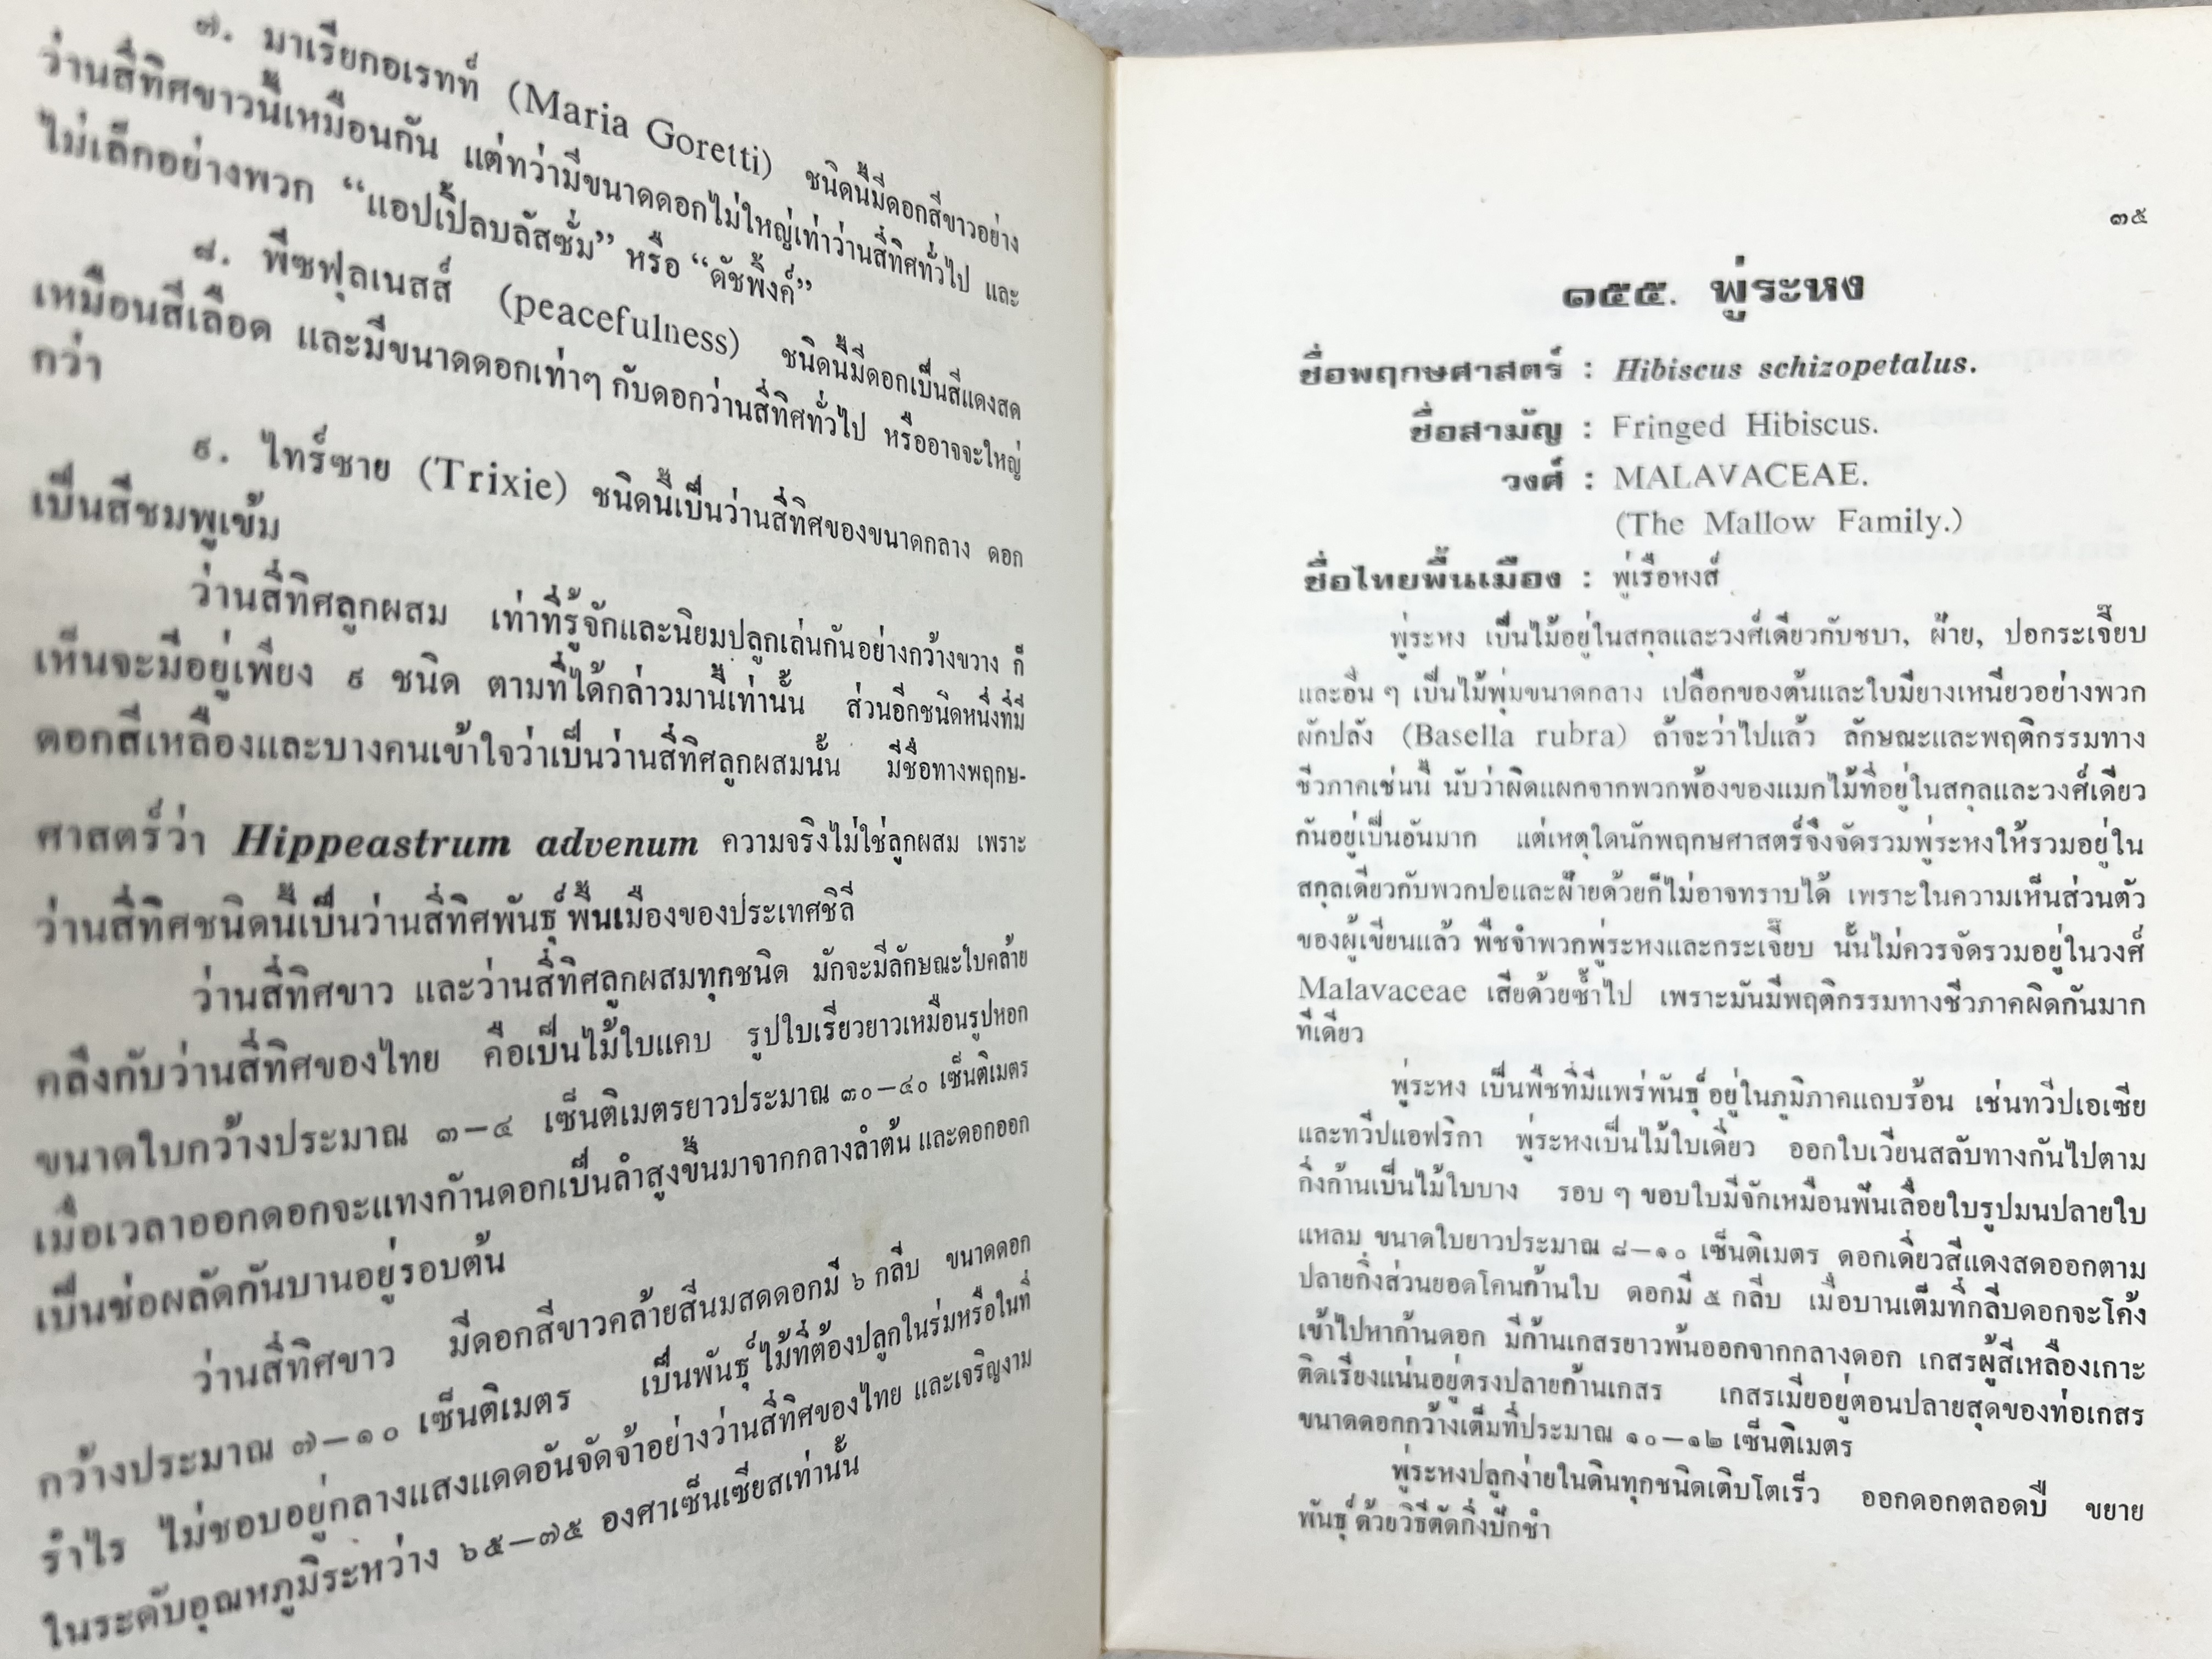 ๗. มาเรียกอเรทท์ (Maria Goretti) ชนิดนี้มีดอกสีขาวอย่าง
ว่านสี่ทิศขาวนี้เหมือนกัน แต่ทว่ามีขนาดดอกไม่ใหญ่เท่าว่านสี่ทิศทั่วไป และ
ไม่เล็กอย่างพวก “แอปเปิ้ลบลัสซั่ม” หรือ “ดัชพิ้งค์”
๘. พีซฟุลเนสส์ (peacefulness) ชนิดนี้มีดอกเป็นสีแดงสด
เหมือนสีเลือด และมีขนาดดอกเท่าๆ กับดอกว่านสี่ทิศทั่วไป หรืออาจจะใหญ่
กว่า
๙. ไทร์ซาย (Trixie) ชนิดนี้เป็นว่านสี่ทิศของขนาดกลาง ดอก
เป็นสีชมพูเข้ม
ว่านสี่ทิศลูกผสม เท่าที่รู้จักและนิยมปลูกเล่นกันอย่างกว้างขวาง ก็
เห็นจะมีอยู่เพียง ๙ ชนิด ตามที่ได้กล่าวมานี้เท่านั้น ส่วนอีกชนิดหนึ่งที่มี
ดอกสีเหลืองและบางคนเข้าใจว่าเป็นว่านสี่ทิศลูกผสมนั้น มีชื่อทางพฤกษ-
ศาสตร์ว่า Hippeastrum advenum ความจริงไม่ใช่ลูกผสม เพราะ
ว่านสี่ทิศชนิดนี้เป็นว่านสี่ทิศพันธุ์พื้นเมืองของประเทศชิลี
ว่านสี่ทิศขาว และว่านสี่ทิศลูกผสมทุกชนิด มักจะมีลักษณะใบคล้าย
คลึงกับว่านสี่ทิศของไทย คือเป็นไม้ใบแคบ รูปใบเรียวยาวเหมือนรูปหอก
ขนาดใบกว้างประมาณ ๓—๔ เซ็นติเมตรยาวประมาณ ๓๐—๔๐ เซ็นติเมตร
เมื่อเวลาออกดอกจะแทงก้านดอกเป็นลำสูงขึ้นมาจากกลางลำต้น และดอกออก
เป็นช่อผลัดกันบานอยู่รอบต้น
ว่านสี่ทิศขาว มีดอกสีขาวคล้ายสีนมสดดอกมี ๖ กลีบ ขนาดดอก
กว้างประมาณ ๗—๑๐ เซ็นติเมตร เป็นพันธุ์ไม้ที่ต้องปลูกในร่มหรือในที่
รำไร ไม่ชอบอยู่กลางแสงแดดอันจัดจ้าอย่างว่านสี่ทิศของไทย และเจริญงาม
ในระดับอุณหภูมิระหว่าง ๖๕—๗๕ องศาเซ็นเซียสเท่านั้น
๓๕
๑๕๕. พู่ระหง
ชื่อพฤกษศาสตร์ : Hibiscus schizopetalus.
ชื่อสามัญ : Fringed Hibiscus.
วงศ์ : MALAVACEAE.
(The Mallow Family.)
ชื่อไทยพื้นเมือง : พู่เรือหงส์
พู่ระหง เป็นไม้อยู่ในสกุลและวงศ์เดียวกับชบา, ฝ้าย, ปอกระเจี๊ยบ
และอื่น ๆ เป็นไม้พุ่มขนาดกลาง เปลือกของต้นและใบมียางเหนียวอย่างพวก
ผักปลัง (Basella rubra) ถ้าจะว่าไปแล้ว ลักษณะและพฤติกรรมทาง
ชีวภาคเช่นนี้ นับว่าผิดแผกจากพวกพ้องของแมกไม้ที่อยู่ในสกุลและวงศ์เดียว
กันอยู่เป็นอันมาก แต่เหตุใดนักพฤกษศาสตร์จึงจัดรวมพู่ระหงให้รวมอยู่ใน
สกุลเดียวกับพวกปอและฝ้ายด้วยก็ไม่อาจทราบได้ เพราะในความเห็นส่วนตัว
ของผู้เขียนแล้ว พืชจำพวกพู่ระหงและกระเจี๊ยบ นั้นไม่ควรจัดรวมอยู่ในวงศ์
Malavaceae เสียด้วยซ้ำไป เพราะมันมีพฤติกรรมทางชีวภาคผิดกันมาก
ทีเดียว
พู่ระหง เป็นพืชที่มีแพร่พันธุ์อยู่ในภูมิภาคแถบร้อน เช่นทวีปเอเซีย
และทวีปแอฟริกา พู่ระหงเป็นไม้ใบเดี่ยว ออกใบเวียนสลับทางกันไปตาม
กิ่งก้านเป็นไม้ใบบาง รอบ ๆ ขอบใบมีจักเหมือนฟันเลื่อยใบรูปมนปลายใบ
แหลม ขนาดใบยาวประมาณ ๘—๑๐ เซ็นติเมตร ดอกเดี่ยวสีแดงสดออกตาม
ปลายกิ่งส่วนยอดโคนก้านใบ ดอกมี ๕ กลีบ เมื่อบานเต็มที่กลีบดอกจะโค้ง
เข้าไปหาก้านดอก มีก้านเกสรยาวพ้นออกจากกลางดอก เกสรผู้สีเหลืองเกาะ
ติดเรียงแน่นอยู่ตรงปลายก้านเกสร เกสรเมียอยู่ตอนปลายสุดของท่อเกสร
ขนาดดอกกว้างเต็มที่ประมาณ ๑๐—๑๒ เซ็นติเมตร
พู่ระหงปลูกง่ายในดินทุกชนิดเติบโตเร็ว ออกดอกตลอดปี ขยาย
พันธุ์ด้วยวิธีตัดกิ่งปักชำ